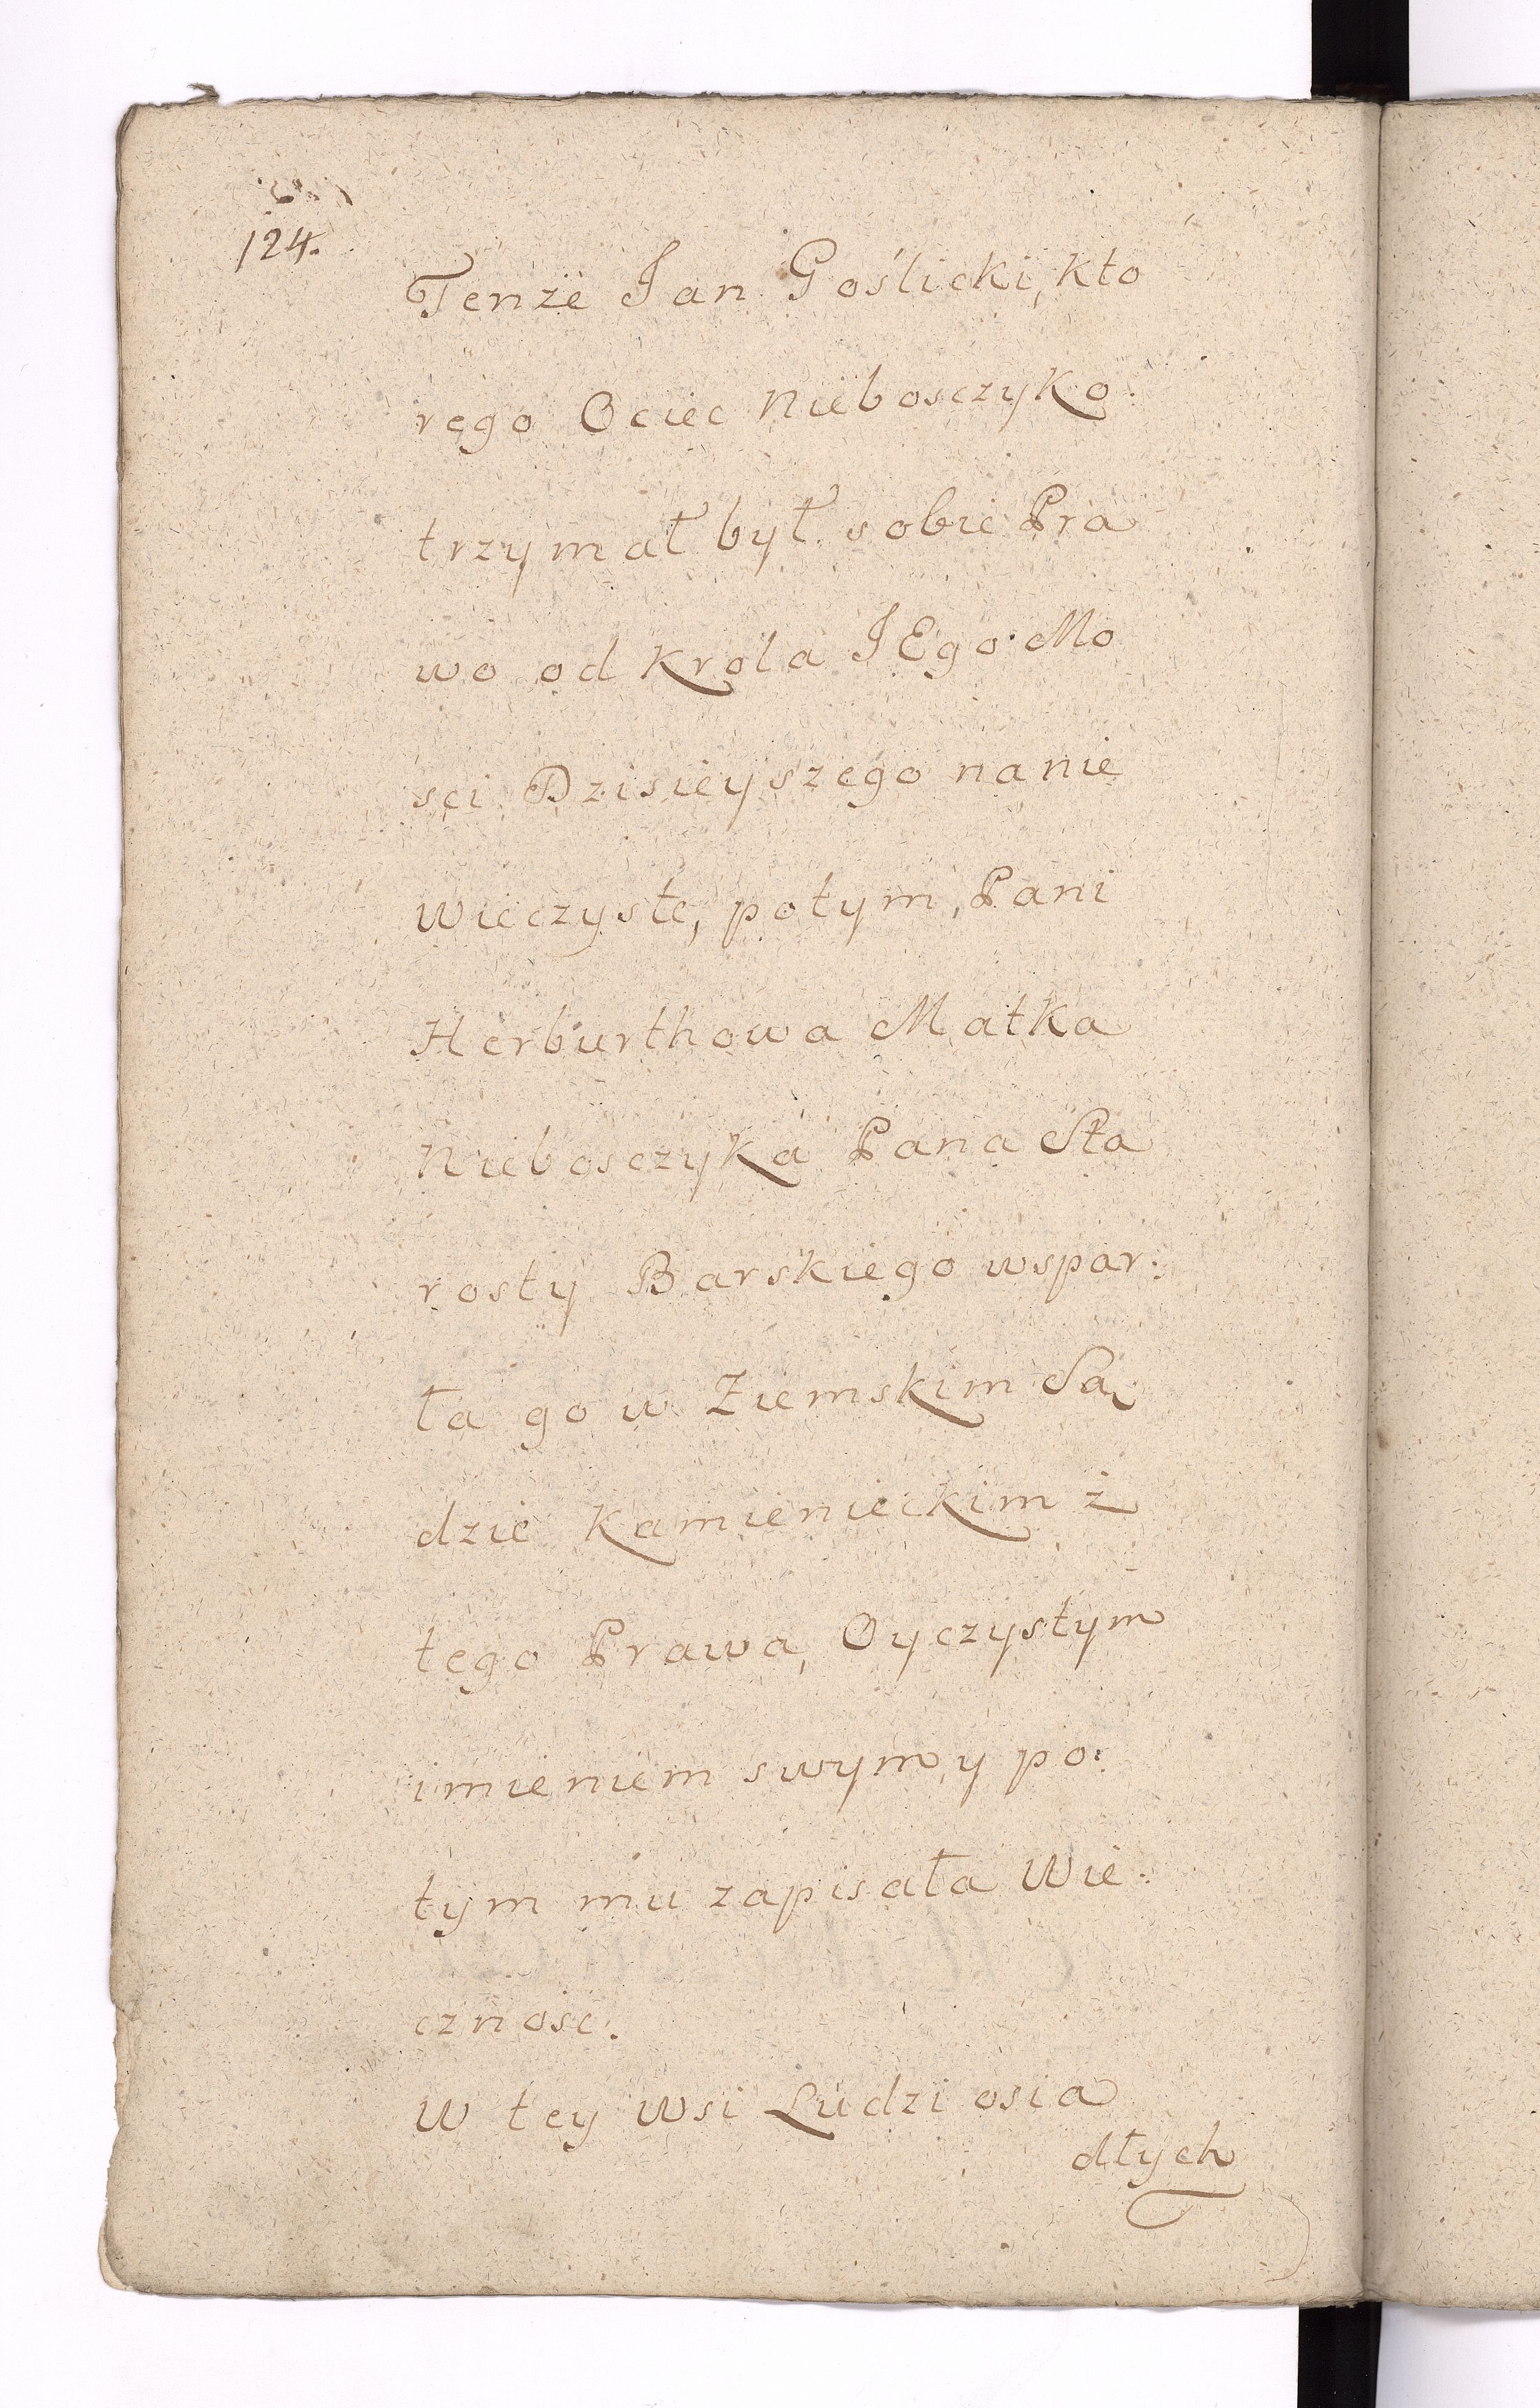 124.
Tenże Jan Goślicki, kto
rego Ociec Nieboszczyk o:
trzymał był sobie Pra
wo od Krola JEgo Mo
sci Dzisieyszego na nie
wieczyste, potym, Pani
Herburthowa Matka
Nieboszczyka Pana Sta
rosty Barskiego wspar:
ła go w Ziemskim Są
dzie Kamienieckim z
tego Prawa, Oyczystym
imieniem swym, y po:
tym mu zapisała Wie:
cznosc.
W tey wsi Ludzi osia
dłych